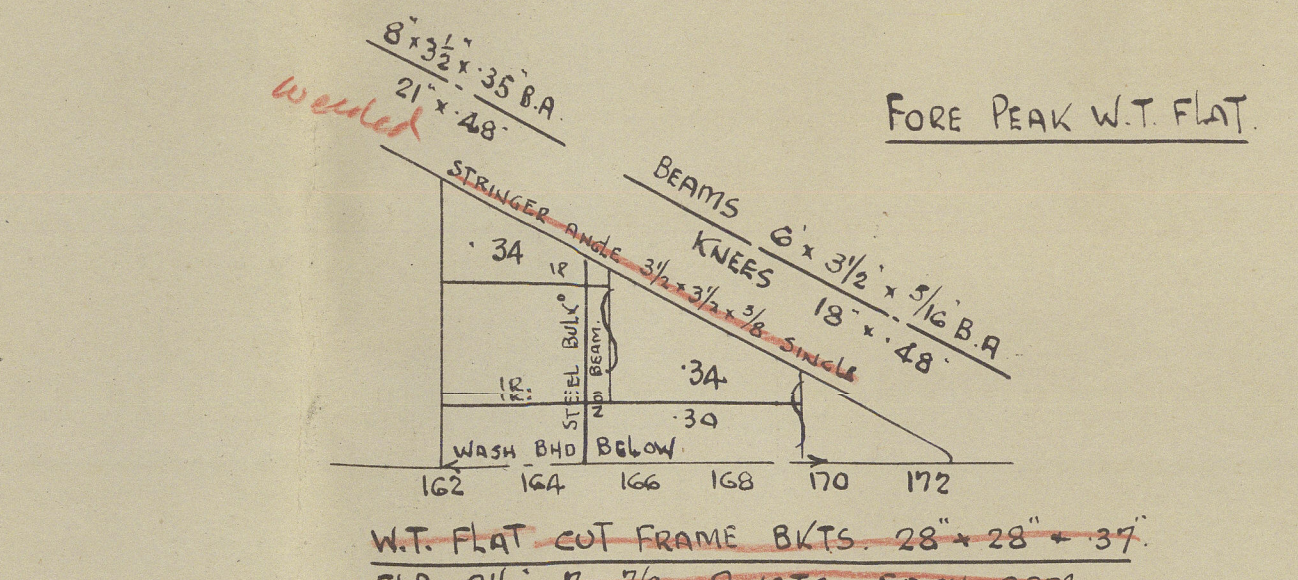 8" x 3 1/2" x .35" B.A.
21" x .48"
welded
FORE PEAK W.T. FLAT.
BEAMS 6" x 3 1/2" x 5/16" B.A
KNEES 18" x .48"
STRINGER ANGLE 3 1/2 x 3 1/2 x 3/8 SINGLE
.34
1R
STEEL BULKD
NO BEAM.
1R
.34
.30
WASH BHD BELOW
162 164 166 168 170 172
W.T. FLAT CUT FRAME BKTS. 28" x 28" x .37".